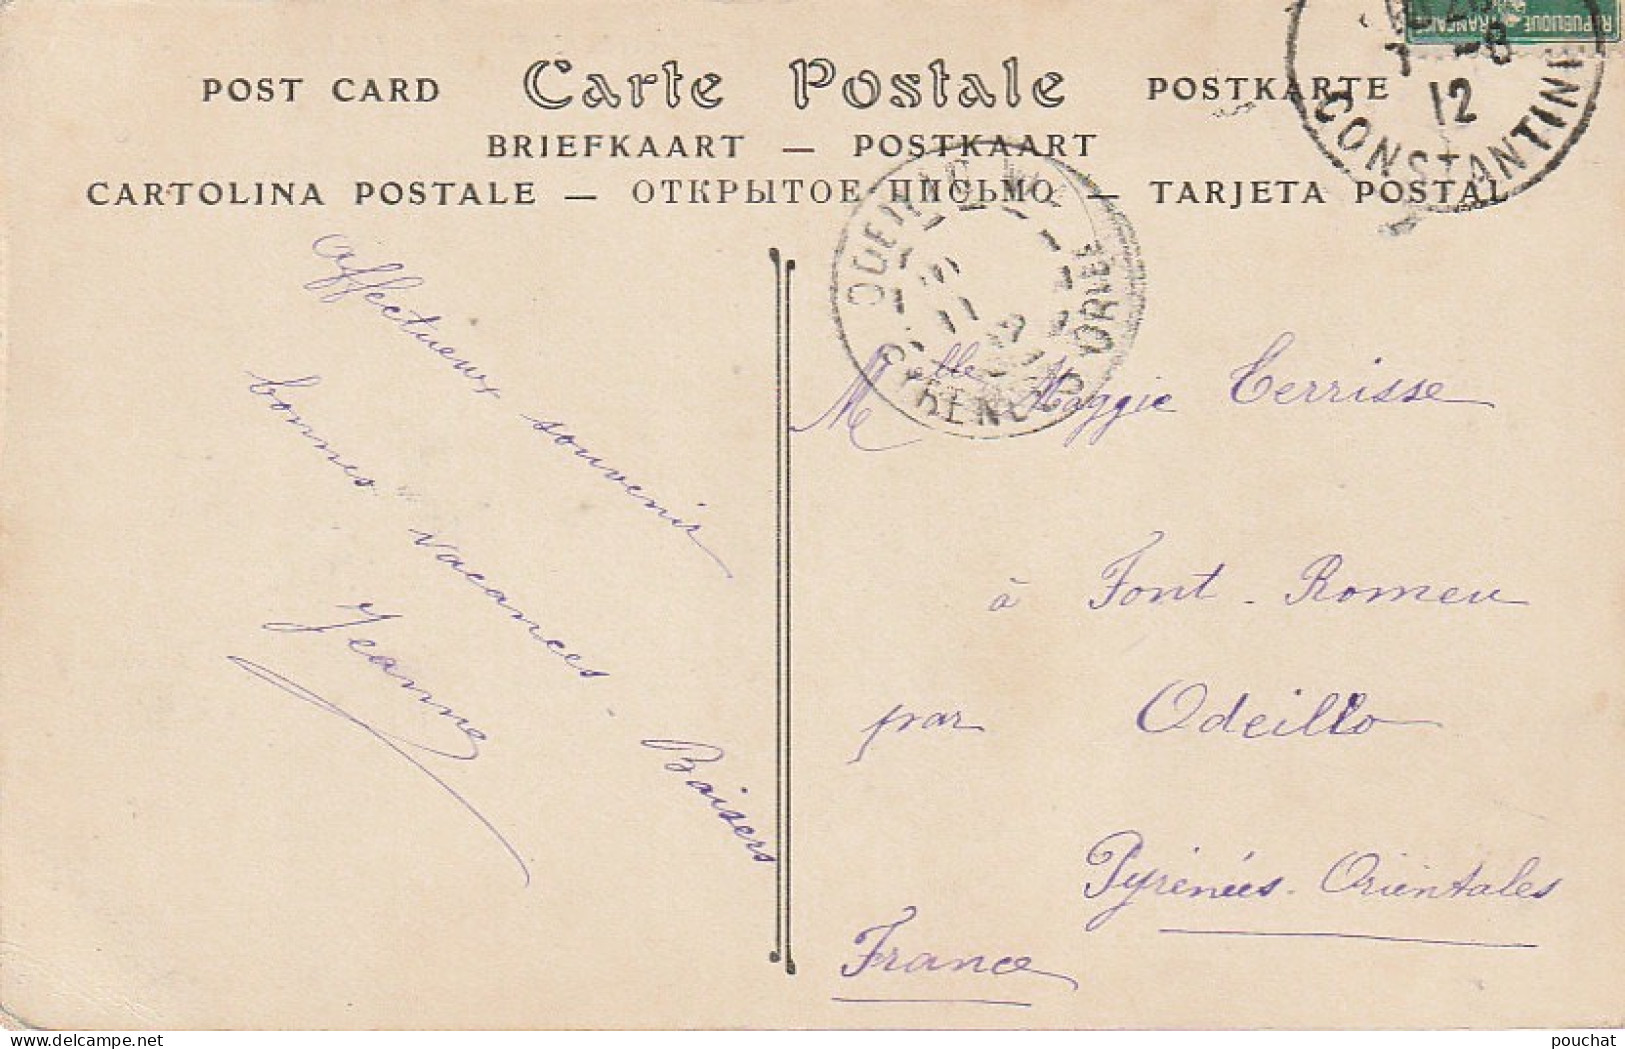 POST CARD Carte Postale POSTKARTE
BRIEFKAART — POSTKAART
CARTOLINA POSTALE — ОТКРЫТОЕ ПИСЬМО — TARJETA POSTAL
REPUBLIQUE FRANÇAISE
7 -8
12
CONSTANTINE
PYRENEES ORIEE
Affectueux souvenir
bonnes vacances.
Baisers
Jeanne
Melle Maggie Cerrisse
à Font-Romeu
par Odeillo
Pyrénées-Orientales
France
pouchat